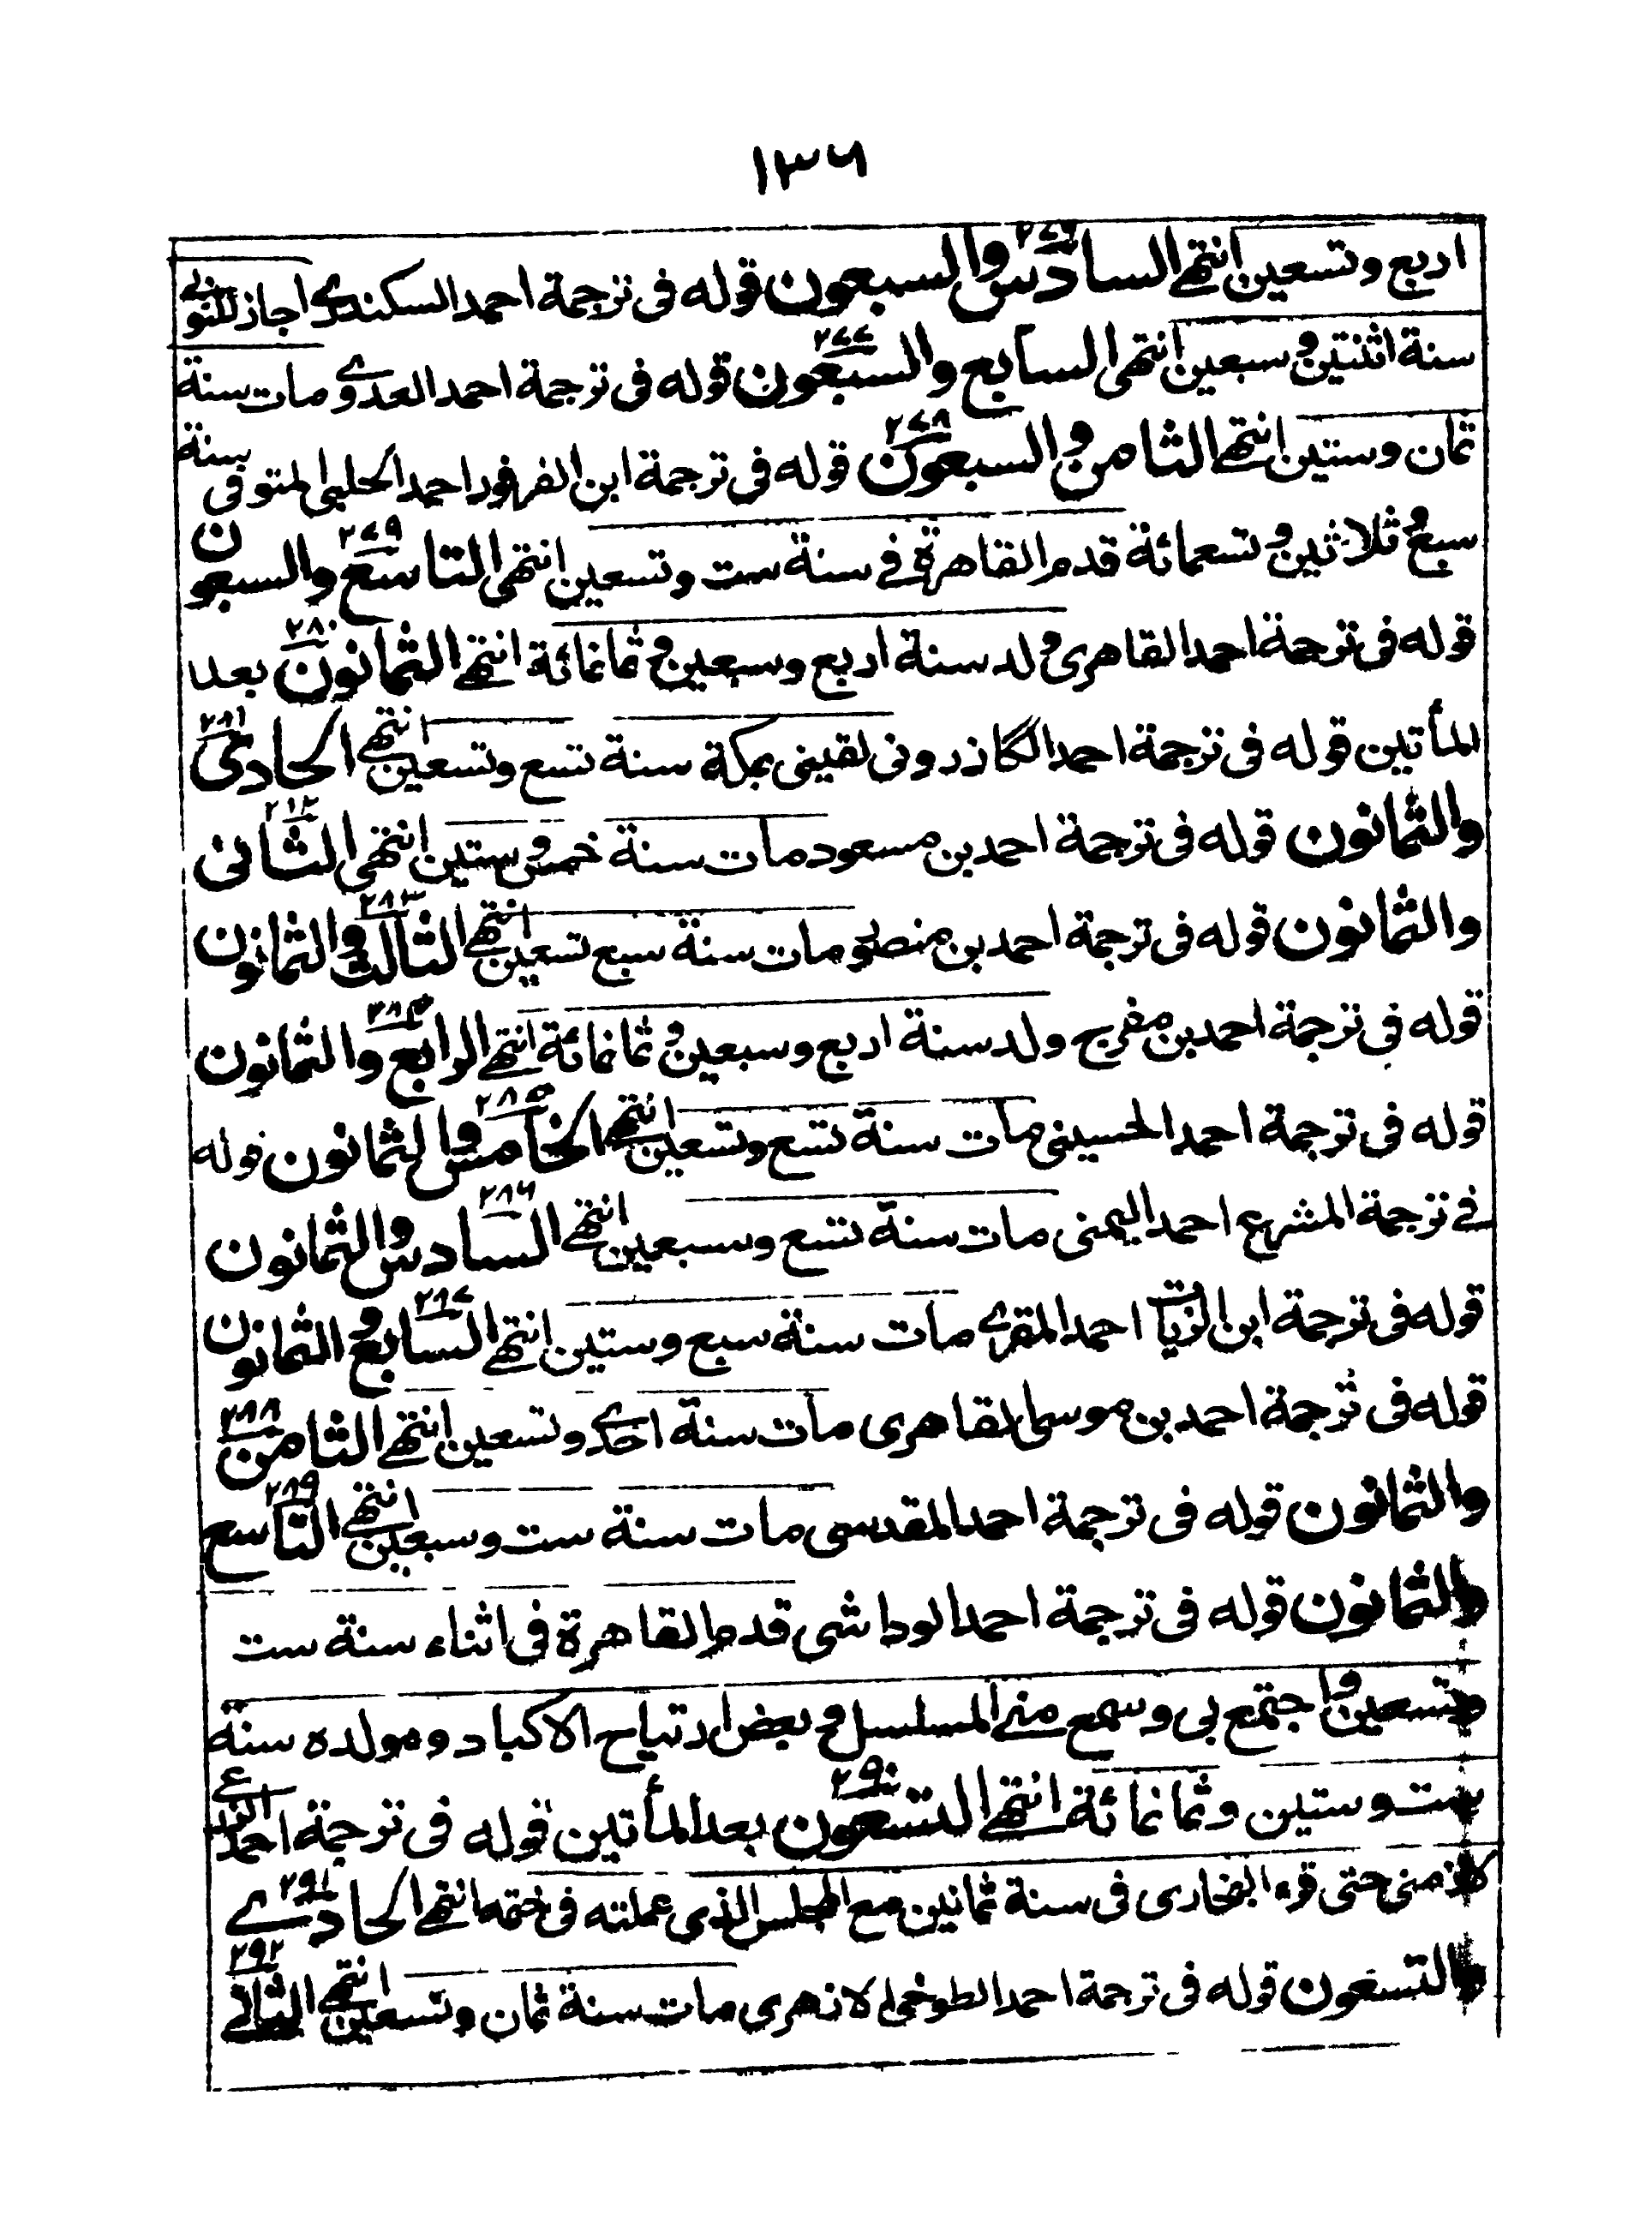 ١٣٦
اربع وتسعين انتهى السادس والسبعون ٢٧٦ قوله فى ترجمة احمد السكندرى اجاز للنوبى
سنة اثنتين وسبعين انتهى السابع والسبعون ٢٧٧ قوله فى ترجمة احمد العدوى مات سنة
ثمان وستين انتهى الثامن والسبعون ٢٧٨ قوله فى ترجمة ابن الفرفور احمد الحلبى المتوفى سنة
سبع وثلاثين وتسعمائة قدم القاهرة فى سنة ست وتسعين انتهى التاسع والسبعون ٢٧٩
قوله فى ترجمة احمد القاهرى ولد سنة اربع وسبعين وثمانمائة انتهى الثمانون ٢٨٠ بعد
المأتين قوله فى ترجمة احمد الكازرونى لقينى بمكة سنة تسع وتسعين انتهى الحادى ٢٨١
والثمانون قوله فى ترجمة احمد بن مسعود مات سنة خمس وستين انتهى الثانى ٢٨٢
والثمانون قوله فى ترجمة احمد بن منصور مات سنة سبع تسعين انتهى الثالث والثمانون ٢٨٣
قوله فى ترجمة احمد بن مفرح ولد سنة اربع وسبعين وثمانمائة انتهى الرابع والثمانون ٢٨٤
قوله فى ترجمة احمد الحسينى مات سنة تسع وتسعين انتهى الخامس والثمانون ٢٨٥ قوله
فى ترجمة المشرع احمد اليمنى مات سنة تسع وسبعين انتهى السادس والثمانون ٢٨٦
قوله فى ترجمة ابن الزيات احمد المقرى مات سنة سبع وستين انتهى السابع والثمانون ٢٨٧
قوله فى ترجمة احمد بن موسى القاهرى مات سنة احدى وتسعين انتهى الثامن ٢٨٨
والثمانون قوله فى ترجمة احمد المقدسى مات سنة ست وسبعين انتهى التاسع ٢٨٩
والثمانون قوله فى ترجمة احمد الوداشى قدم القاهرة فى اثناء سنة ست
وتسعين واجتمع بى وسمع منى المسلسل وبعض ارتياح الاكباد ومولده سنة
ست وستين وثمانمائة انتهى التسعون ٢٩٠ بعد المأتين قوله فى ترجمة احمد
لازمنى حتى قرء البخارى فى سنة ثمانين مع المجلس الذى عملته فى ختمه انتهى الحادى ٢٩١
والتسعون قوله فى ترجمة احمد الطوخى الازهرى مات سنة ثمان وتسعين انتهى الثانى ٢٩٢